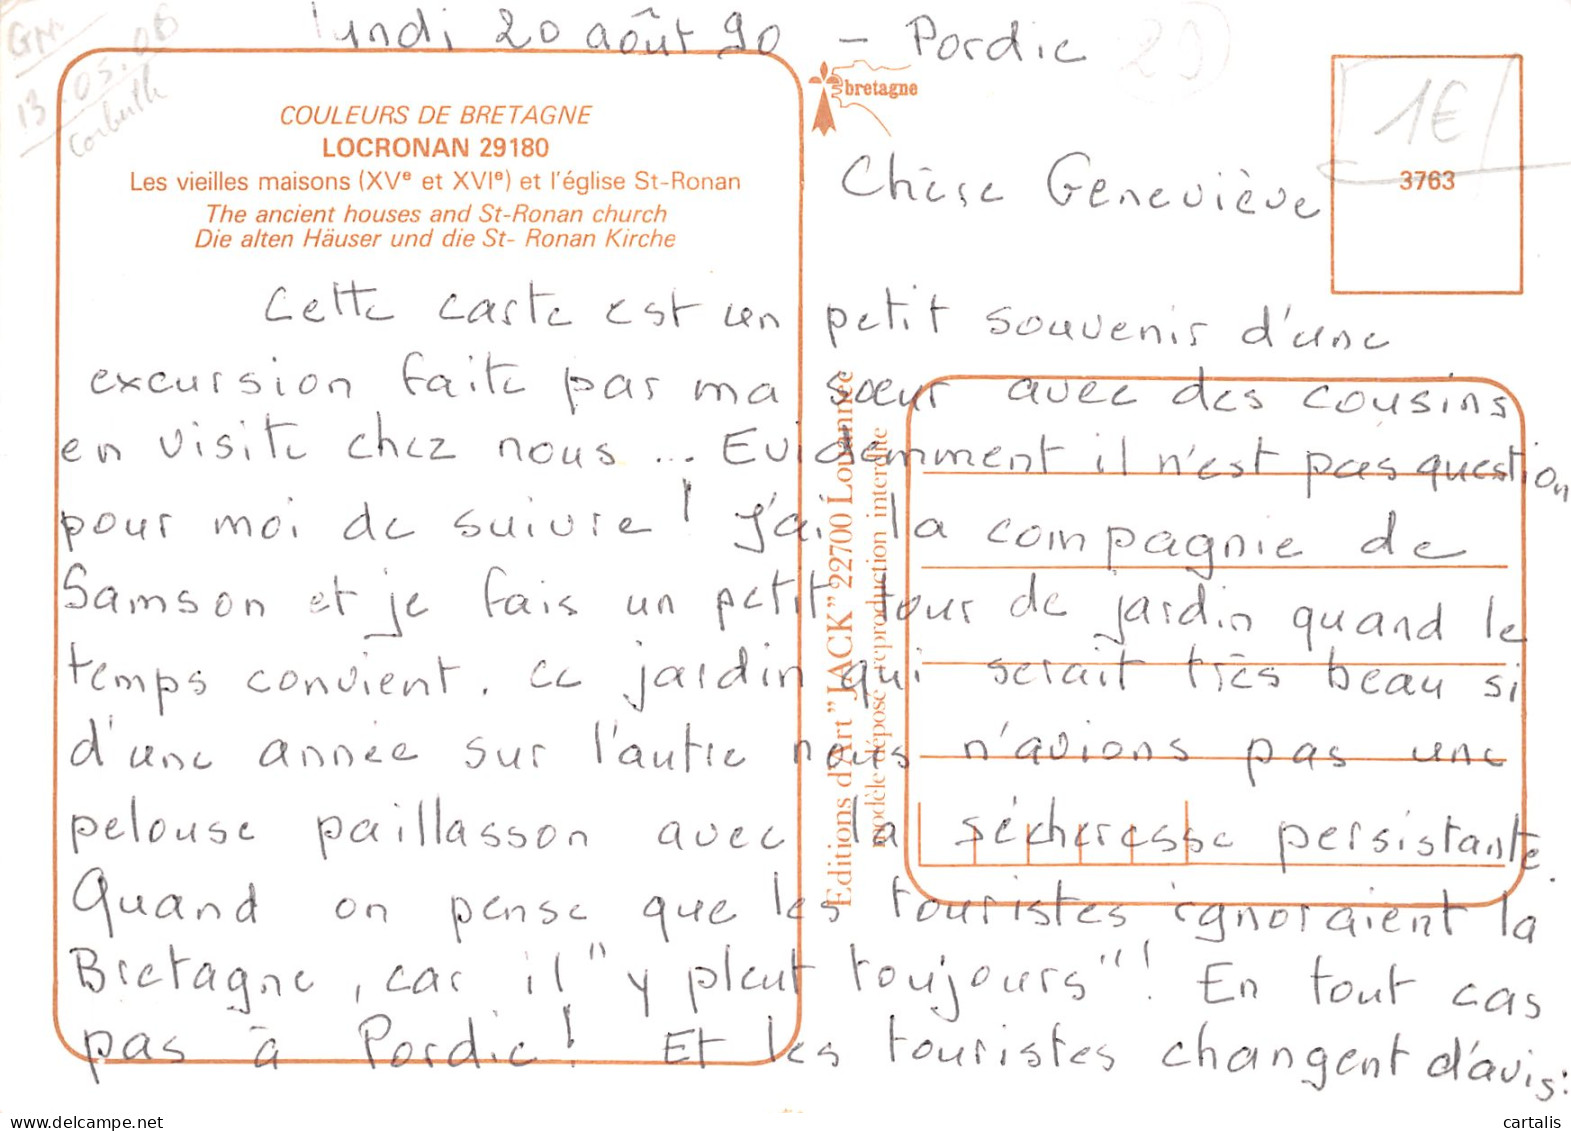 lundi 20 août 90 - Pordic
29
GM
13.05.06
Corbeille
COULEURS DE BRETAGNE
LOCRONAN 29180
Les vieilles maisons (XVe et XVIe) et l'église St-Ronan
The ancient houses and St-Ronan church
Die alten Häuser und die St- Ronan Kirche
bretagne
1€
3763
Chère Geneviève
Cette carte est un petit souvenir d'une
excursion faite par ma sœur avec des cousins
en visite chez nous... Evidemment il n'est pas question
pour moi de suivre! J'ai la compagnie de
Samson et je fais un petit tour de jardin quand le
temps convient. Ce jardin qui serait très beau si
d'une année sur l'autre nous n'avions pas une
pelouse paillasson avec la sécheresse persistante.
Quand on pense que les touristes ignoraient la
Bretagne, car il "y pleut toujours"! En tout cas
pas à Pordic! Et les touristes changent d'avis:
Editions d'Art "JACK" 22700 Louannec
modèle déposé - reproduction interdite
delcampe.net
cartalis